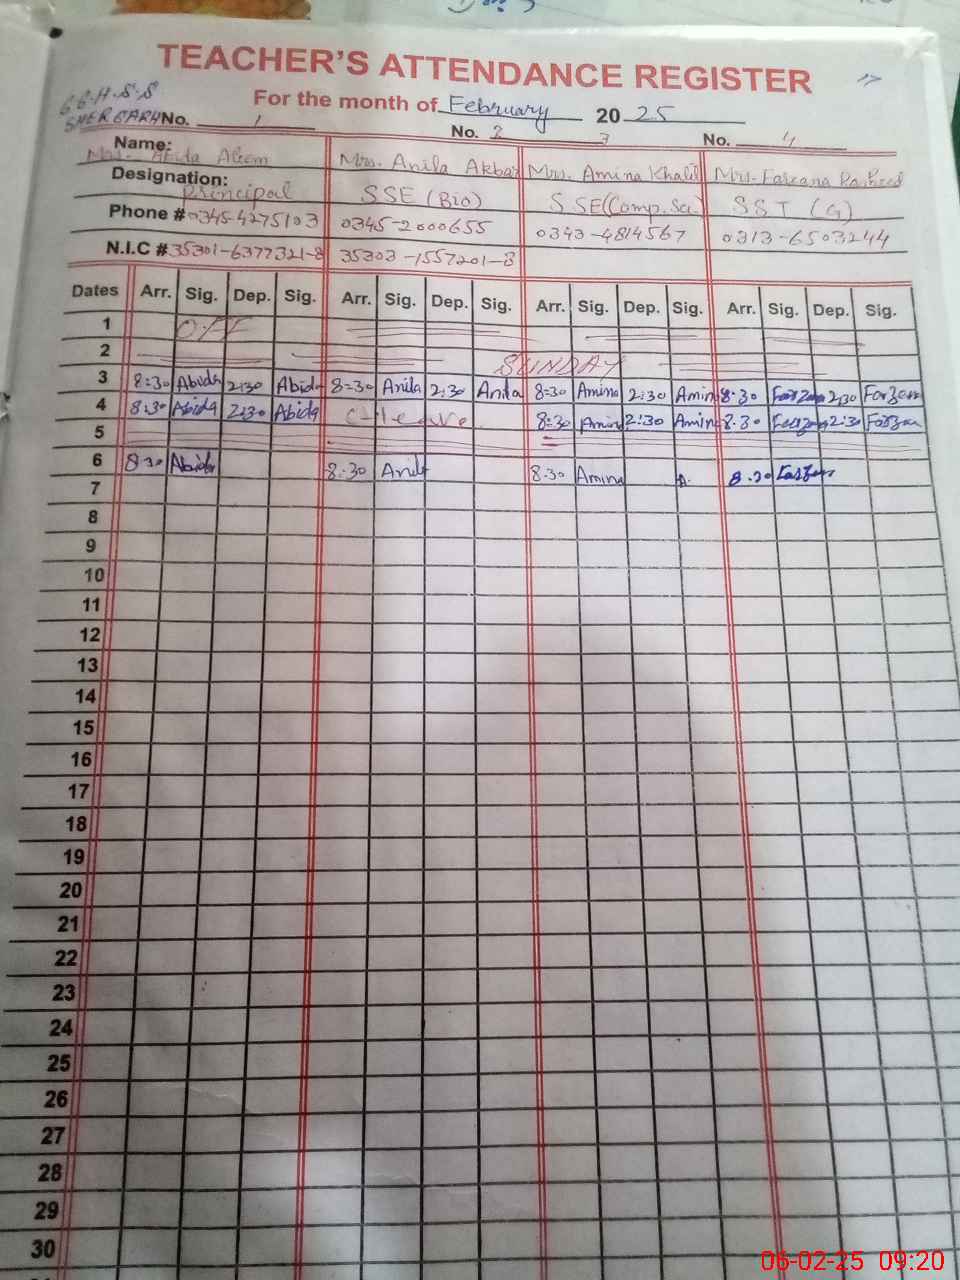 TEACHER'S ATTENDANCE REGISTER
For the month of February 2025
G.G.H.S.S
SHERGARH
No. 1 No. 2 3 No. 4
Name: Mrs. Abida Aleem Mrs. Anila Akbar Mrs. Amina Khalil Mrs. Farzana Rasheed
Designation: Principal SSE (Bio) SSE (Comp. Sci) SST (G)
Phone # 0345-4275103 0345-2000655 0343-4814567 0313-6503244
N.I.C # 35301-6377321-8 35303-1557201-8
Dates Arr. Sig. Dep. Sig. Arr. Sig. Dep. Sig. Arr. Sig. Dep. Sig. Arr. Sig. Dep. Sig.
1 OFF
2 SUNDAY
3 8:30 Abida 2:30 Abida 8=30 Anila 2:30 Anila 8=30 Amina 2:30 Amin 8.30 Farzan 2:30 Farzan
4 8:30 Abida 2:30 Abida C-leave 8=30 Amina 2:30 Amin 8.30 Farzan 2:30 Farzan
5
6 8:30 Abida 8:30 Anila 8.30 Amina A. 8.30 Farzan
7
8
9
10
11
12
13
14
15
16
17
18
19
20
21
22
23
24
25
26
27
28
29
30
06-02-25 09:20